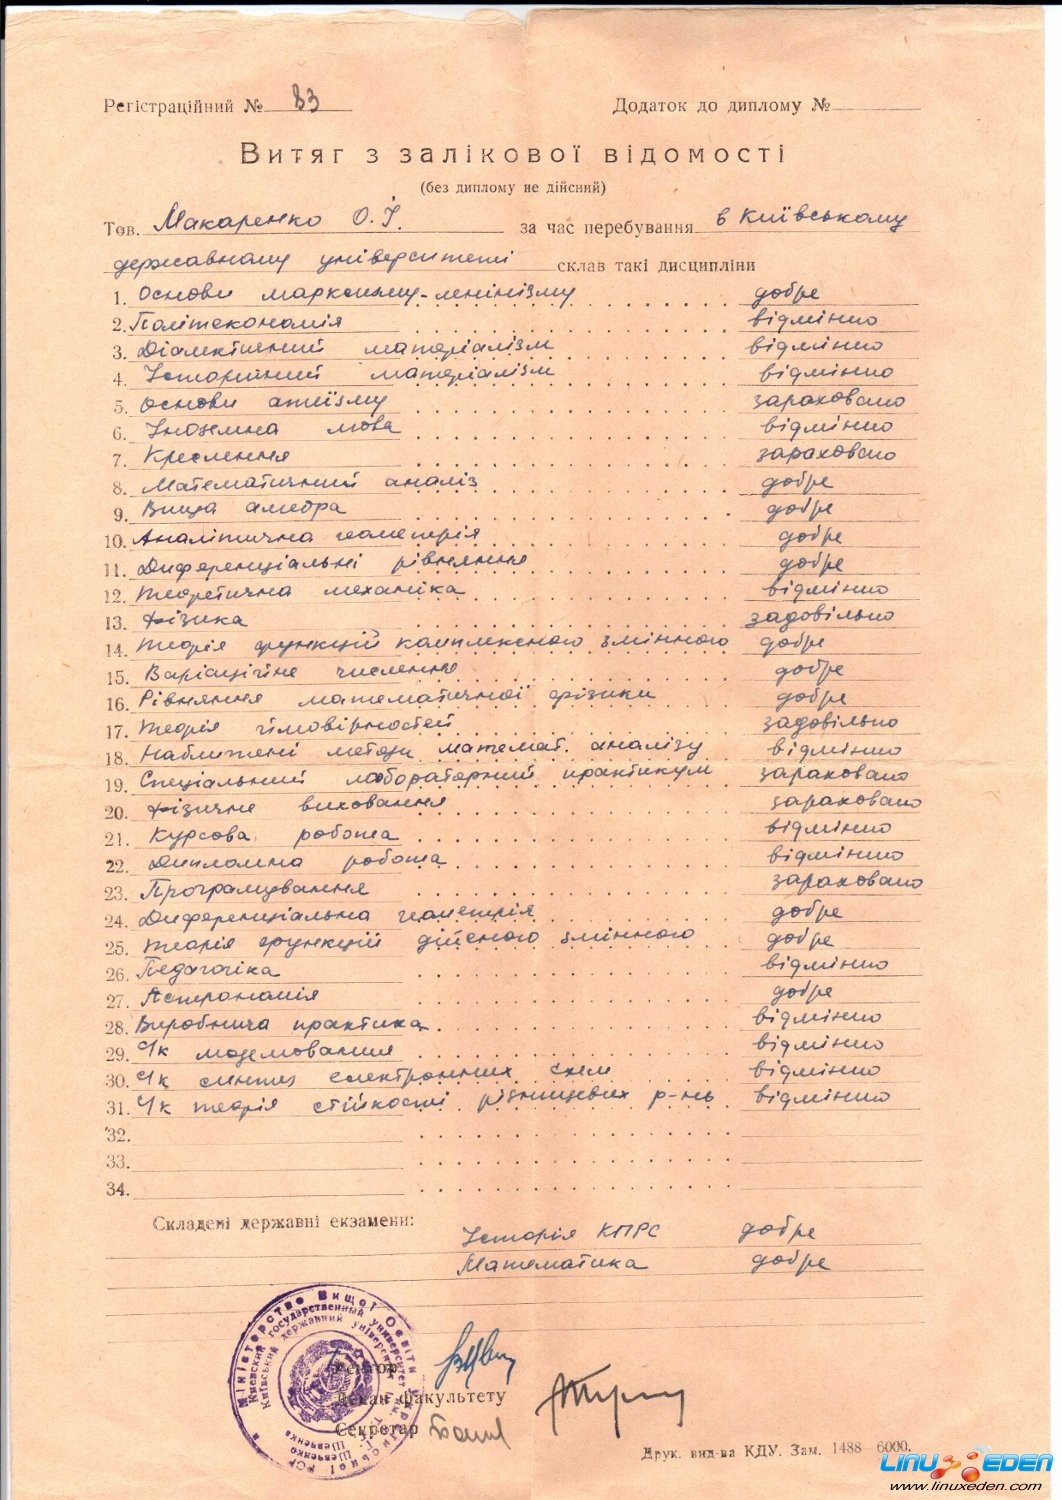 Регістраційний № 83 Додаток до диплому №
Витяг з залікової відомості
(без диплому не дійсний)
Тов. Макаренко О.І. за час перебування в Київському
державному університеті склав такі дисципліни
1. Основи марксизму-ленінізму добре
2. Політекономія відмінно
3. Діалектичний матеріалізм відмінно
4. Історичний матеріалізм відмінно
5. Основи атеїзму зараховано
6. Іноземна мова відмінно
7. Креслення зараховано
8. Математичний аналіз добре
9. Вища алгебра добре
10. Аналітична геометрія добре
11. Диференціальні рівняння добре
12. Теоретична механіка відмінно
13. Фізика задовільно
14. Теорія функцій комплексного змінного добре
15. Варіаційне числення добре
16. Рівняння математичної фізики добре
17. Теорія ймовірностей задовільно
18. Наближені методи математ. аналізу відмінно
19. Спеціальний лабораторний практикум зараховано
20. Фізичне виховання зараховано
21. Курсова робота відмінно
22. Дипломна робота відмінно
23. Програмування зараховано
24. Диференціальна геометрія добре
25. Теорія функцій дійсного змінного добре
26. Педагогіка відмінно
27. Астрономія добре
28. Виробнича практика відмінно
29. С/к моделювання відмінно
30. С/к синтез електронних схем відмінно
31. С/к теорія стійкості різницевих р-нь відмінно
32.
33.
34.
Складені державні екзамени:
Історія КПРС добре
Математика добре
Міністерство Вищої Освіти Української РСР
Киевский государственный университет им. Т. Г. Шевченко
Київський державний університет ім. Т. Г. Шевченка
Ректор
Декан факультету
Секретар
Друк. вид-ва КДУ. Зам. 1488—6000.
LinuxEDEN
www.linuxeden.com